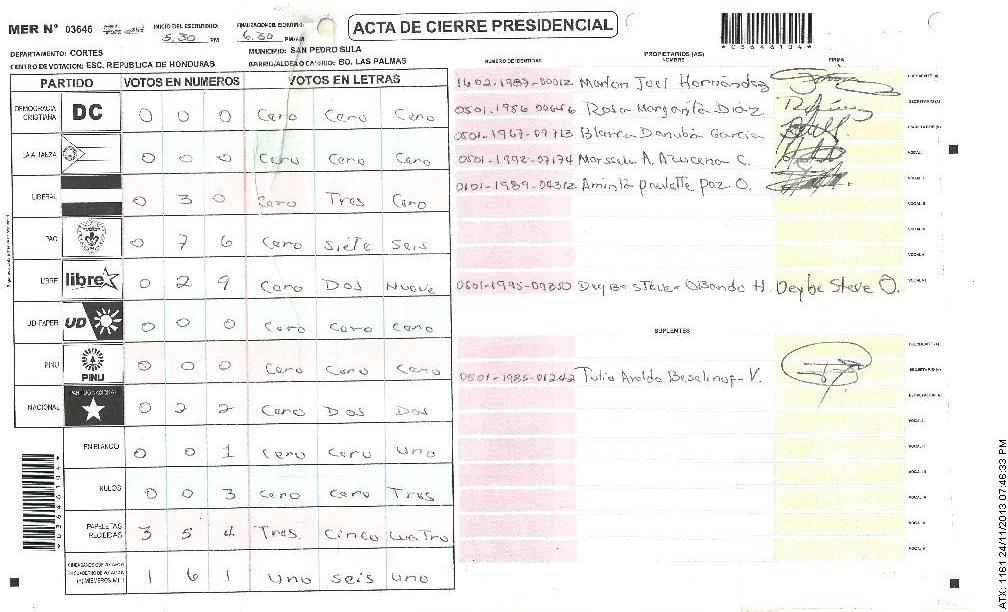 MER N° 03646
INICIO DEL ESCRUTINIO: 5.30 PM
FINALIZACION DEL ESCRUTINIO: 6.30 PM/AM
ACTA DE CIERRE PRESIDENCIAL
*03646104*
DEPARTAMENTO: CORTES
MUNICIPIO: SAN PEDRO SULA
CENTRO DE VOTACION: ESC. REPUBLICA DE HONDURAS
BARRIO/ALDEA O CASERIO: BO. LAS PALMAS
PARTIDO VOTOS EN NUMEROS VOTOS EN LETRAS
DEMOCRACIA CRISTIANA DC 0 0 0 Cero Cero Cero
LA ALIANZA 0 0 0 Cero Cero Cero
LIBERAL 0 3 0 Cero Tres Cero
PAC 0 7 6 Cero Siete Seis
LIBRE libre 0 2 9 Cero Dos Nueve
UD-FAPER UD 0 0 0 Cero Cero Cero
PINU PINU 0 0 0 Cero Cero Cero
NACIONAL PARTIDO NACIONAL 0 2 2 Cero Dos Dos
EN BLANCO 0 0 1 Cero Cero Uno
NULOS 0 0 3 Cero Cero Tres
PAPELETAS RECIBIDAS 3 5 4 Tres Cinco Cuatro
1 6 1 Uno seis uno
*03646104*
PROPIETARIOS (AS)
NUMERO DE IDENTIDAD NOMBRE FIRMA
1602-1987-00012 Marlon Joel Hernández PRESIDENTE (A)
0501-1956-00656 Rosa Margarita Díaz SECRETARIO (A)
0501-1967-09713 Blanca Danubia Garcia ESCRUTADOR (A)
0501-1992-07174 A. Azucena C. VOCAL I
0101-1989-04312 Aminta paulette paz O. VOCAL II
VOCAL III
VOCAL IV
VOCAL V
0501-1995-09850 Deybe Steve Obando H. Deybe Steve O. VOCAL VI
SUPLENTES
PRESIDENTE (A)
0501-1985-01242 Tulio Araldo V. SECRETARIO (A)
ESCRUTADOR (A)
VOCAL I
VOCAL II
VOCAL III
VOCAL IV
VOCAL V
VOCAL VI
ATX: 1161 24/11/2013 07:46:33 PM